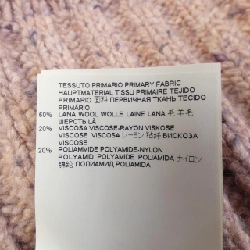 TESSUTO PRIMARIO PRIMARY FABRIC
HAUPTMATERIAL TISSU PRIMAIRE TEJIDO
PRIMARIO 面料 ПЕРВИЧНАЯ ТКАНЬ TECIDO
PRIMARIO
60% LANA WOOL WOLLE LAINE LANA 毛 羊毛
ШЕРСТЬ LÃ
20% VISCOSA VISCOSE-RAYON VISKOSE
VISCOSE VISCOSA レーヨン ВИСКОЗА
VISCOSE
20% POLIAMMIDE POLYAMIDE-NYLON
POLYAMID POLYAMIDE POLIAMIDA ナイロン
ПОЛИАМИД POLIAMIDA